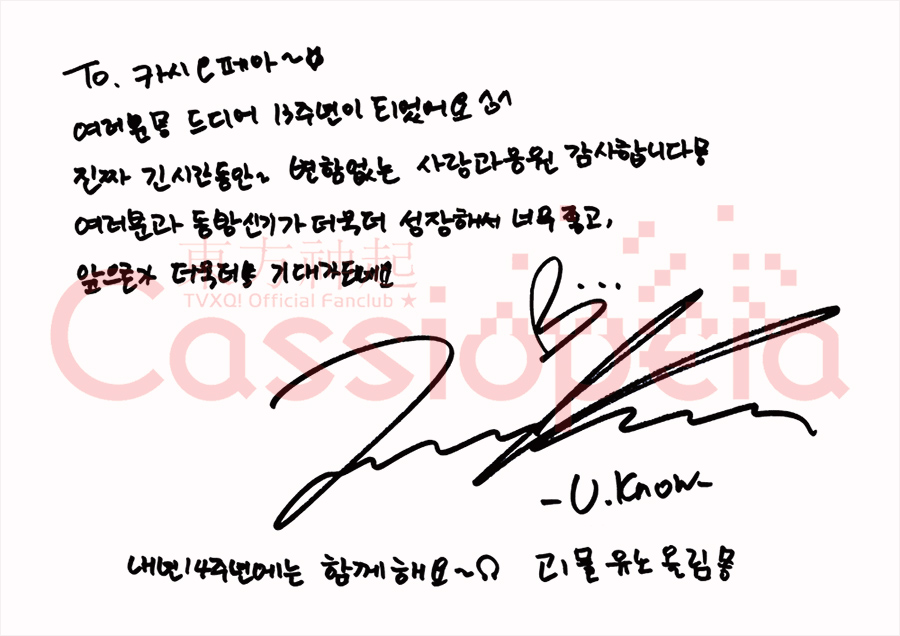 To. 카시오페아~♡
여러분 드디어 13주년이 되었어요 ^^
진짜 긴 시간동안~ 변함없는 사랑과 응원 감사합니다
여러분과 동방신기가 더욱더 성장해서 너무 좋고,
앞으로가 더욱더 기대가 되네요
東方神起
TVXQ! Official Fanclub ★
Cassiopeia
-U.Know-
내년 14주년에는 함께해요~ 유노 올림